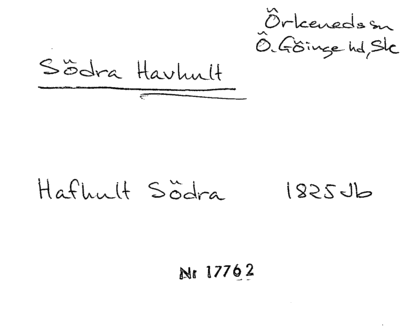 Örkeneds sn
Ö. Göinge hd, Sk
Södra Havhult
Hafhult Södra 1825 Jb
Nr 17762